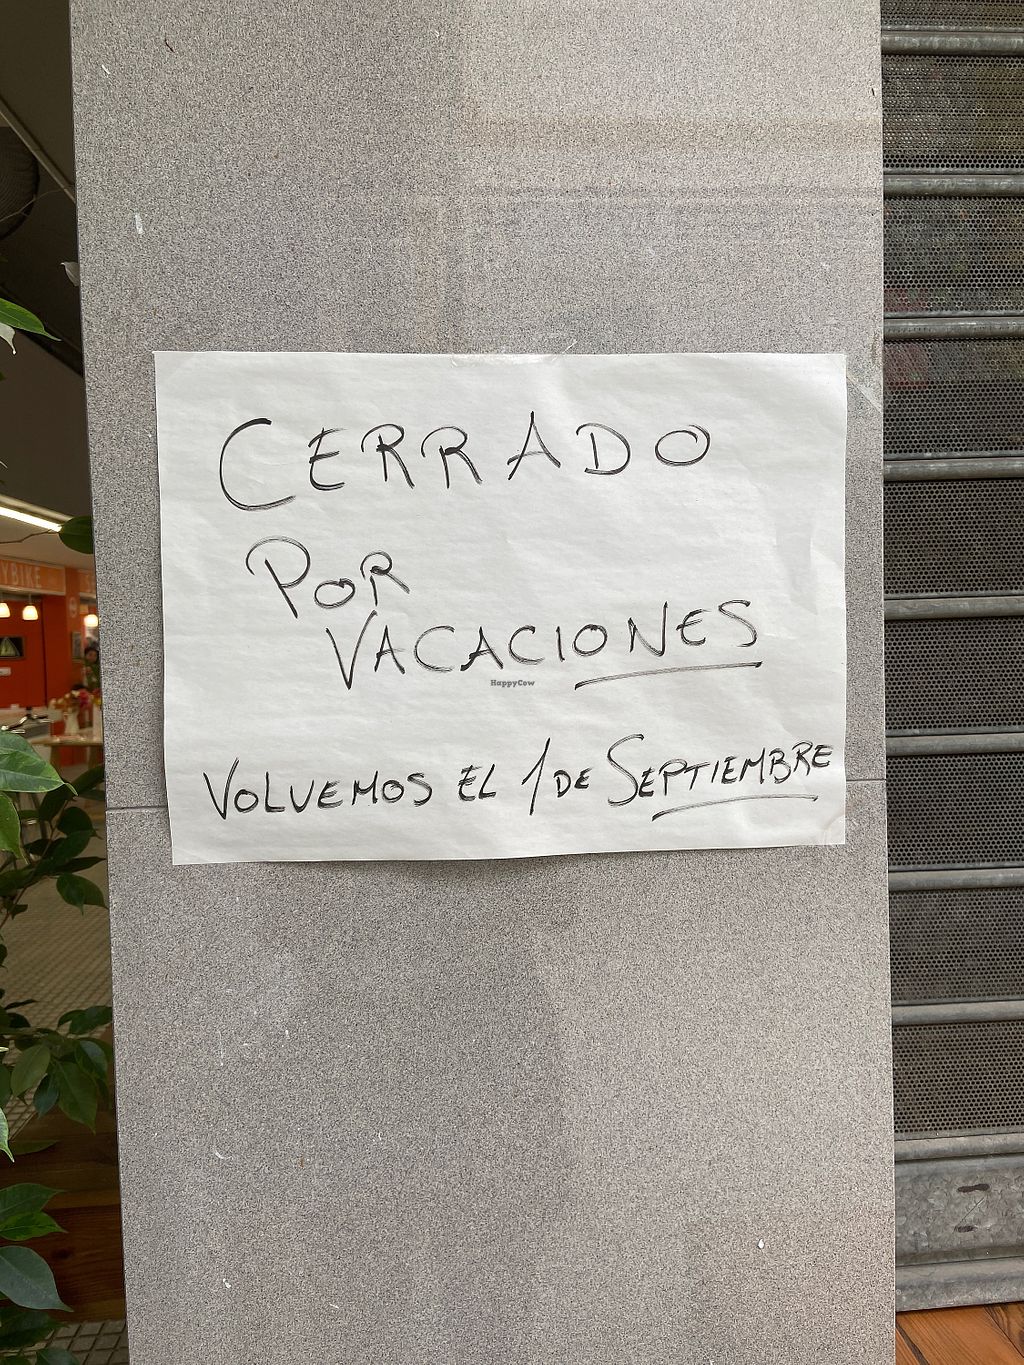 CERRADO
POR
VACACIONES
HappyCow
VOLVEMOS EL 1 DE SEPTIEMBRE
YBIKE